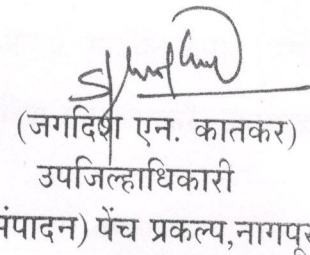 (जगदिश एन. कातकर)
उपजिल्हाधिकारी
संपादन) पेंच प्रकल्प,नागपूर